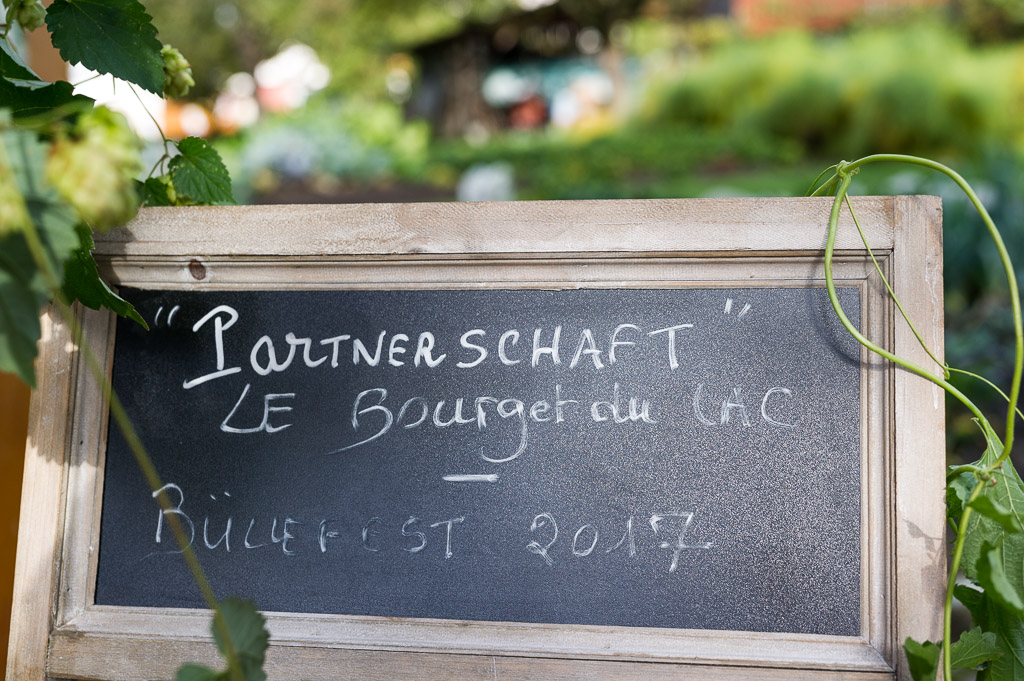 "PARTNERSCHAFT"
LE Bourget du LAC
—
BÜLLEFEST 2017